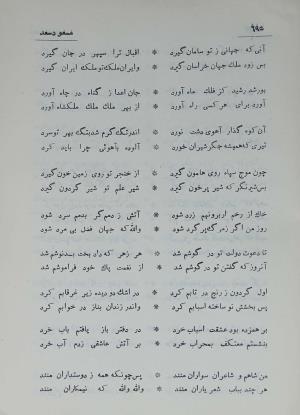 ۶۹۵ مسعود سعد
آنی که جهانی ز تو سامان گیرد * اقبال ترا سپهر در جان گیرد
بس زود ملک جهان خراسان گیرد * و ایران ملک تو ملک ایران گیرد
بورشد رشید کز فلک جاه آورد * جان اعدا ز گناه در چاه آورد
آورد برای هر کسی راه آورد * از بهر ملک ملک ملکشاه آورد
آن کوه گذار آهوی دشت نورد * اندر تگ گرم شد بتگ بهر تو سرد
تیری که همیشه جگر شیران خورد * آلوده بآهوئی چرا باید کرد
چون موج سپاه روی هامون گیرد * از خنجر تو روی زمین خون گیرد
بس شیر که شیر پر خون گیرد * شیر علم تو شیر گردون گیرد
خاک از رخم ار برونهم زرد شود * آتش ز دمم گر بدمم سرد شود
روز من اگر زمر که پر گرد شود * والله که جهان فضل بی مرد شود
تا دعوت دولت تو در گوشم شد * هر زهر که داد بخت بد نوشم شد
آنروز که گفتن تو در گوشم شد * از نعمت پاک خود فراموشم شد
اول گردون ز رنج در تابم کرد * در اشک دو دیده زیر غرقابم کرد
پس بخشش نو ساخته اسبابم کرد * واندر زندان بناز در خوابم کرد
بر همزده بود عشقت اسباب خرد * در دفتر باز یافتم باب خرد
بنشستم معتکف بمحراب خرد * بر آتش عاشقی زدم آب خرد
من شاهم و شاعران سواران منند * پس چونکه همه ز دوستداران منند
هر چند بباب شهریاران منند * والله والله که نیمکاران منند